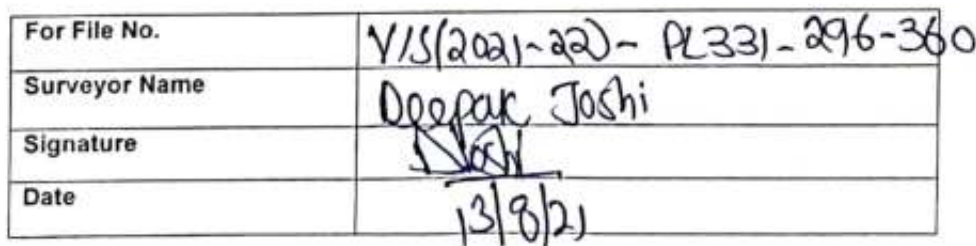 For File No. VIS(2021-22)- PL331-296-360
Surveyor Name Deepak Joshi
Signature
Date 13/8/21